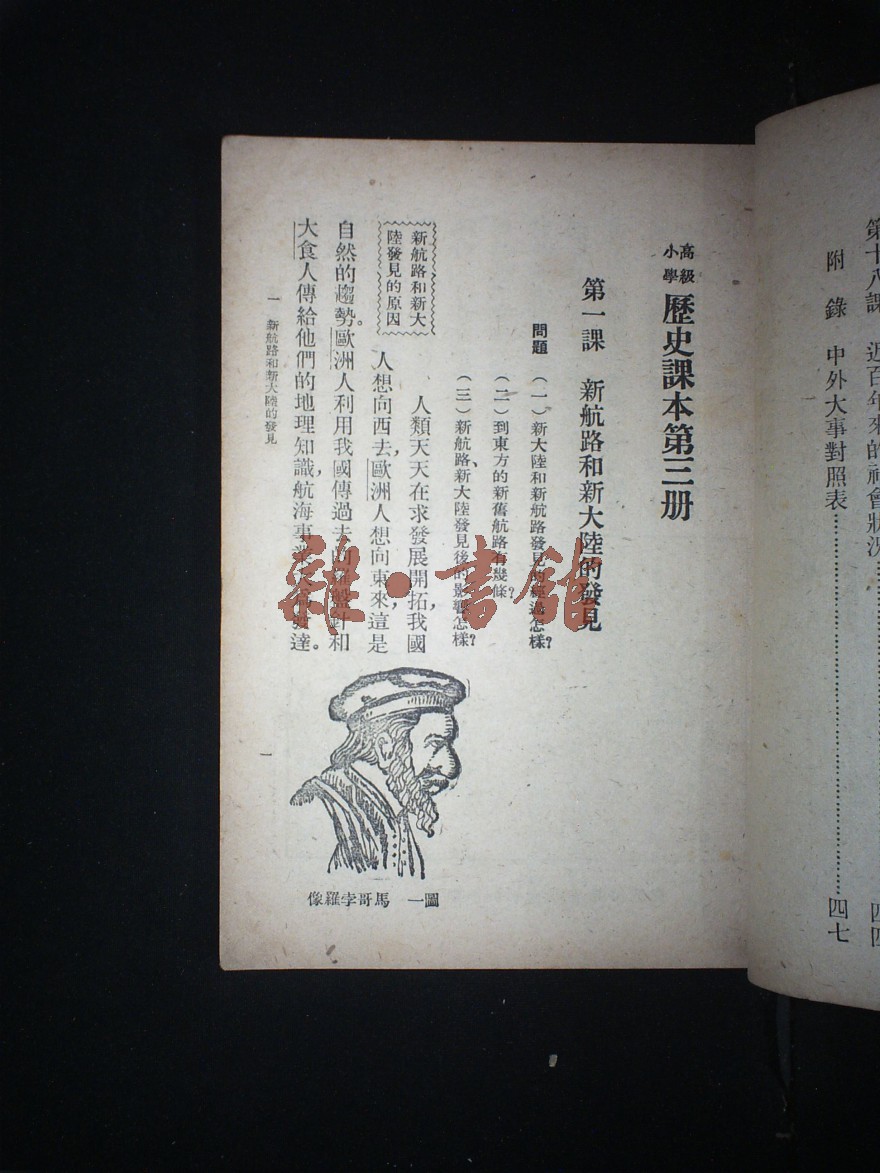 第十八課 近百年來的社會狀況……四四
附錄 中外大事對照表……四七
高級小學 歷史課本第三册
第一課 新航路和新大陸的發見
問題 (一)新大陸和新航路發見的經過怎樣?
(二)到東方的新舊航路有幾條?
(三)新航路、新大陸發見後的影響怎樣?
新航路和新大
陸發見的原因
人類天天在求發展開拓,我國
人想向西去,歐洲人想向東來,這是
自然的趨勢。歐洲人利用我國傳過去的羅盤針和
大食人傳給他們的地理知識,航海事業大為發達。
圖一 馬哥孛羅像
一 新航路和新大陸的發見
一
雜·書館